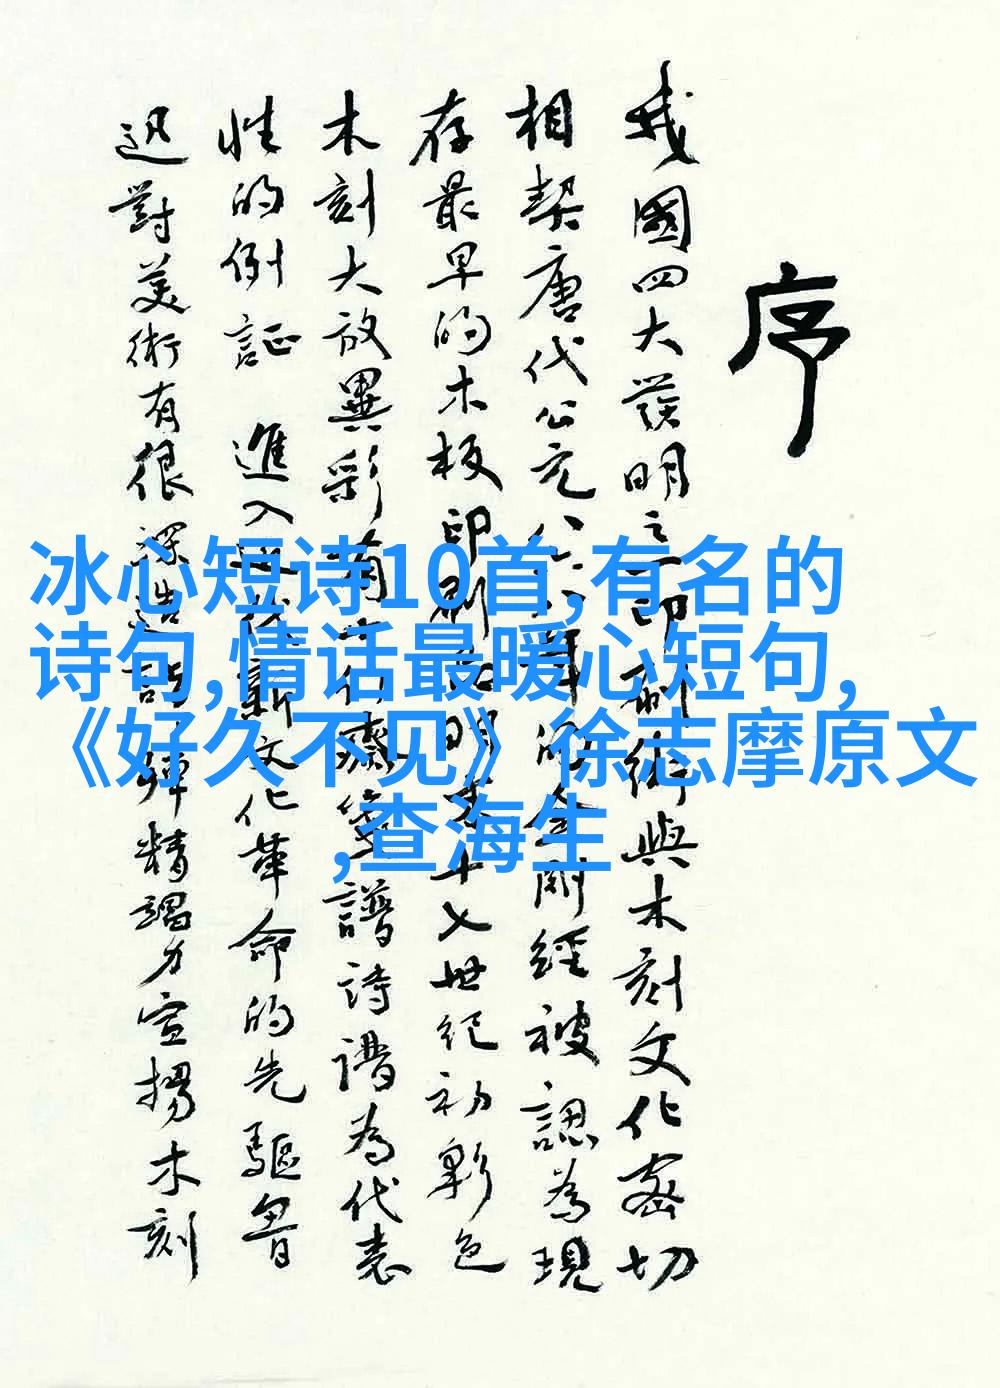 序
我國四大發明之一印刷術與木刻文化密切
相契唐代公元八六八年的金剛經被認為現
存最早的木板印刷 明末十七世紀初彩色
木刻大放異彩 十竹齋箋譜詩譜為代表
性的例証 進入近代新文化革命的先驅魯
迅對美術有很深造詣殫精竭力宣揚木刻
冰心短诗10首,有名的
诗句,情话最暖心短句,
《好久不见》徐志摩原文
,查海生